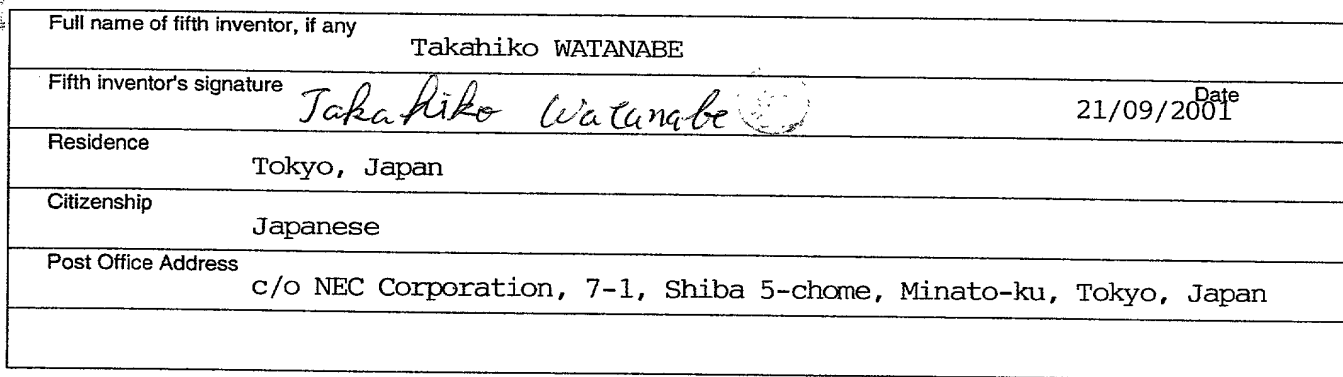 Full name of fifth inventor, if any
Takahiko WATANABE
Fifth inventor's signature
Takahiko Watanabe
Date
21/09/2001
Residence
Tokyo, Japan
Citizenship
Japanese
Post Office Address
c/o NEC Corporation, 7-1, Shiba 5-chome, Minato-ku, Tokyo, Japan